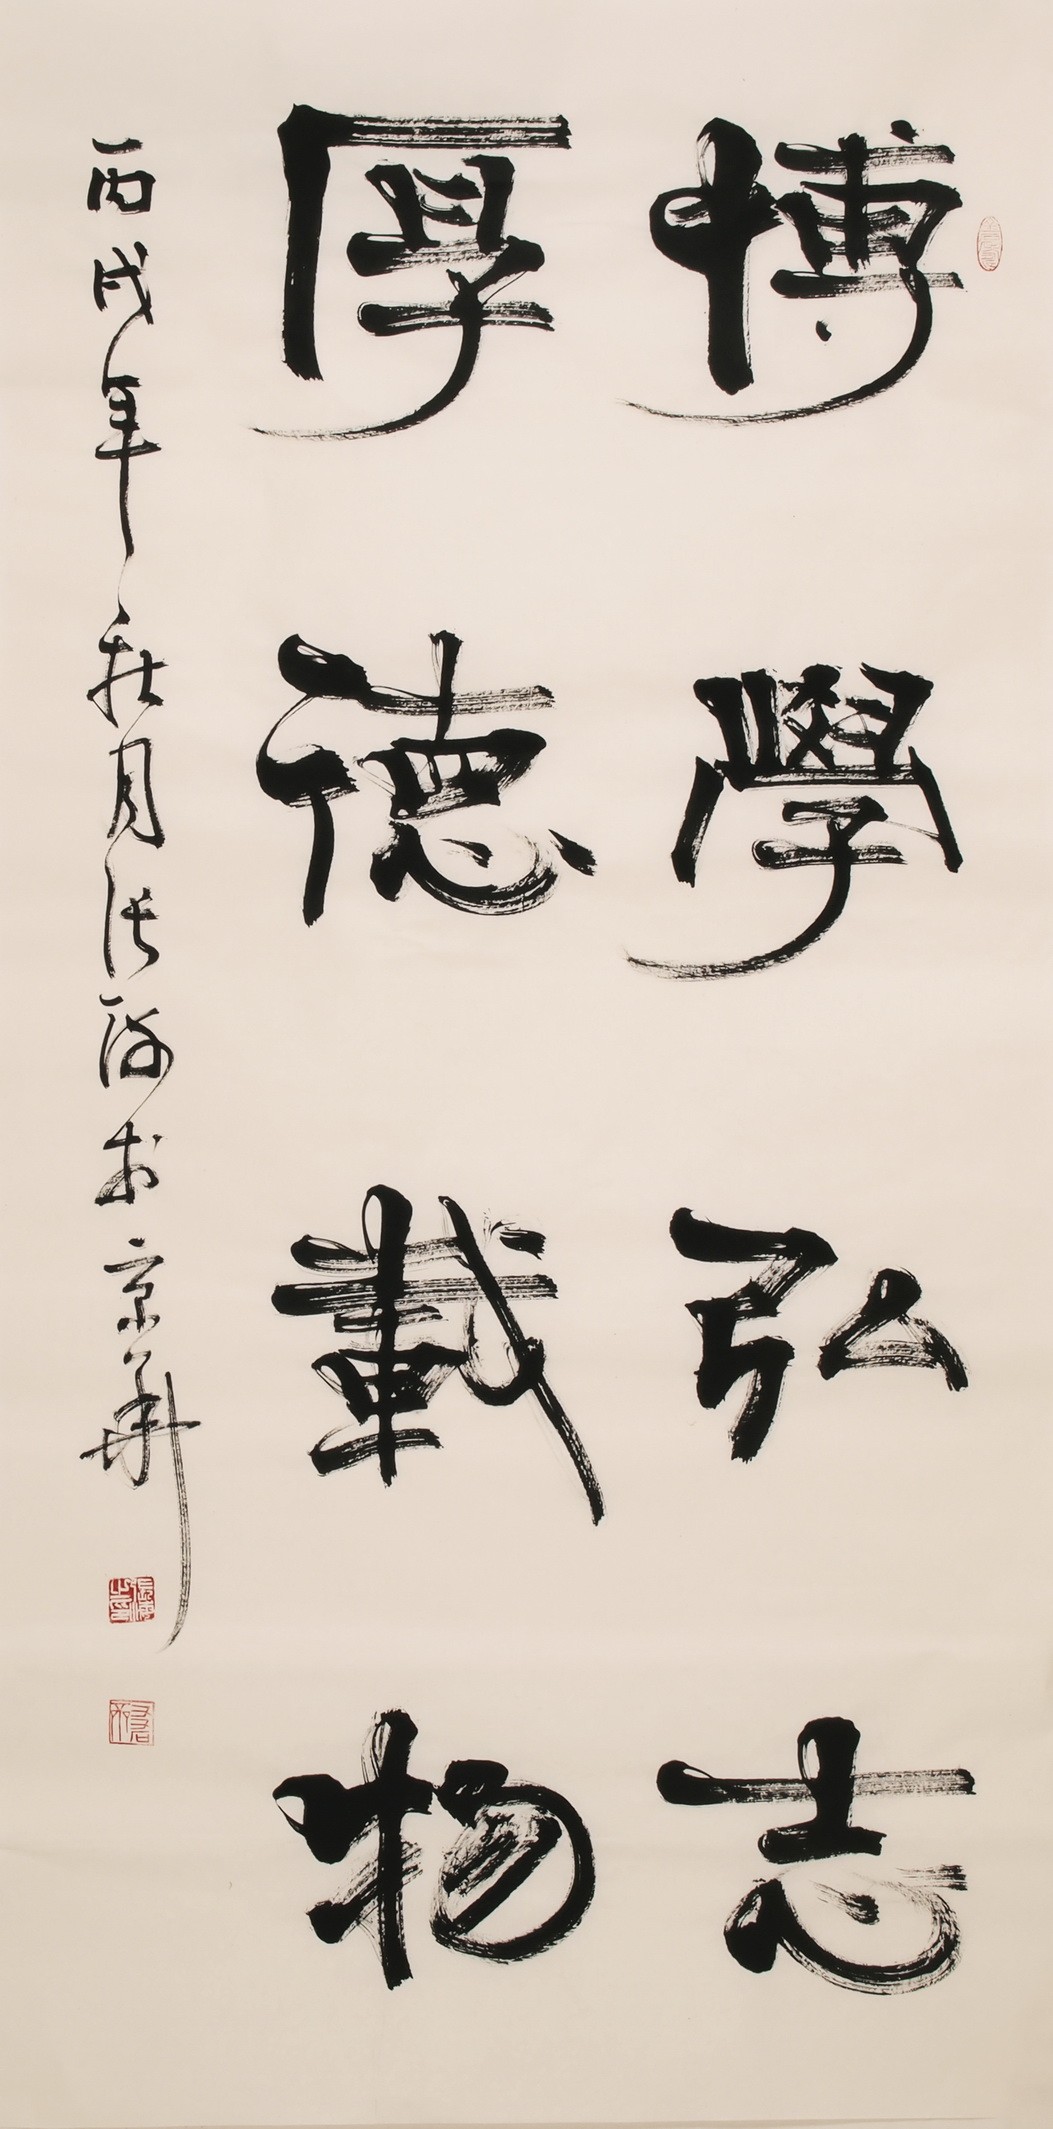 博學弘志
厚德載物
丙戌年秋月張於京華